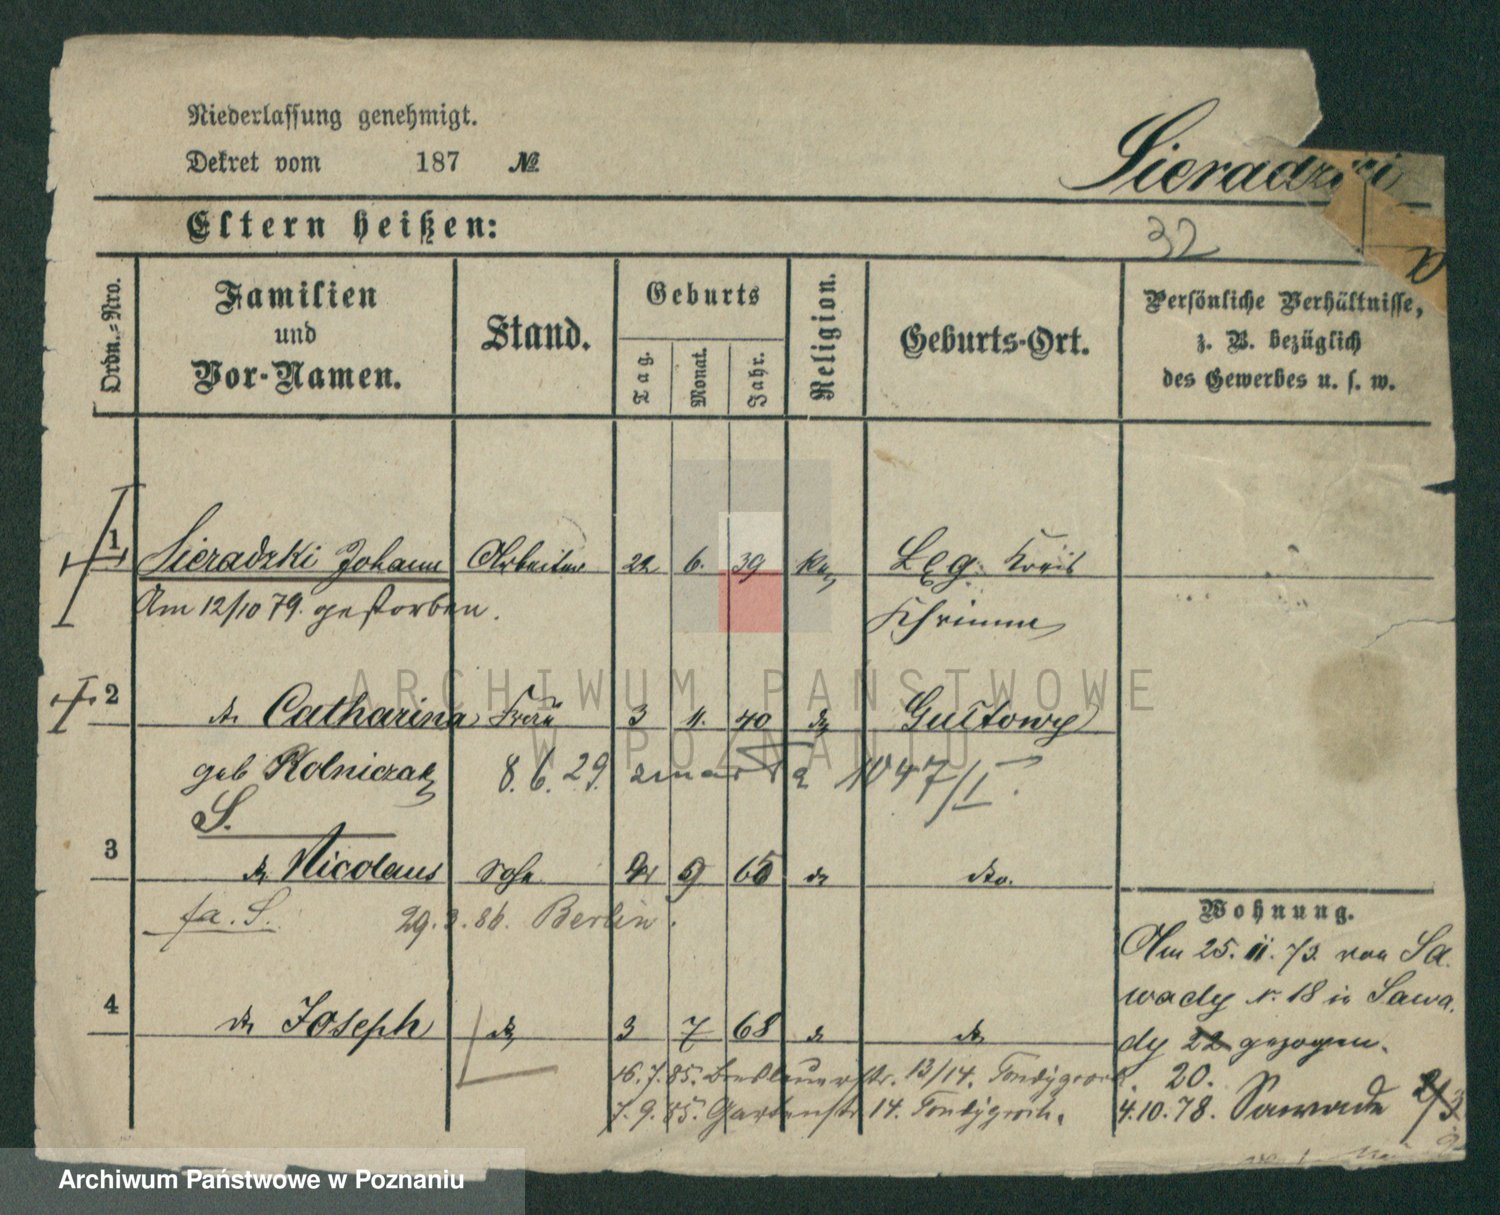 Niederlassung genehmigt.
Dekret vom 187 №
Sieradzki
Eltern heißen:
32
Ordn.=Nro.
Familien
und
Vor-Namen.
Stand.
Geburts
Tag.
Monat.
Jahr.
Religion.
Geburts-Ort.
Persönliche Verhältnisse,
z. B. bezüglich
des Gewerbes u. s. w.
1 Sieradzki Johann Arbeiter 22 6. 39 Leg Kreis
Am 12/10 79. gestorben. Schrimm
2 Catharina Frau 3 11. 40 Gultowy
geb Rolniczak 8. 6. 29. 1047/I
S.
3 Nicolaus Sohn 9 65 dto.
fa. S. 29.3.86. Berlin.
4 Joseph 3 7 68
16.7.85. Breslauerstr. 13/14.
7.9.85. Gartenstr 14.
Wohnung.
Am 25. 11. 73 von Sa
wady N. 18 in Sawa
dy 22 gezogen.
20.
4.10.78. Sawade 2/3
ARCHIWUM PAŃSTWOWE
W POZNANIU
Archiwum Państwowe w Poznaniu